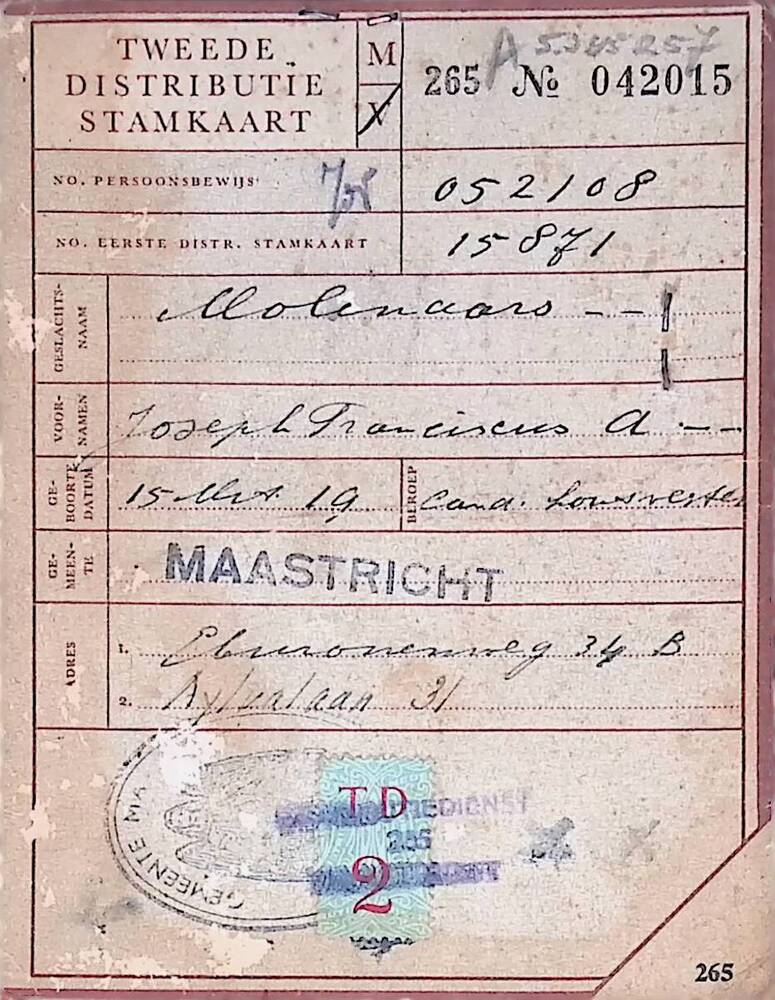 A 5385257
TWEEDE
DISTRIBUTIE
STAMKAART
M
V
265 № 042015
NO. PERSOONSBEWIJS
052108
NO. EERSTE DISTR. STAMKAART
15871
GESLACHTS-
NAAM
Molenaars - -
VOOR-
NAMEN
Joseph Franciscus A - -
GE-
BOORTE
DATUM
15 Mrt 19
BEROEP
Cand.
GE-
MEEN-
TE
MAASTRICHT
ADRES
1. Eburonenweg 34 B
2. Sylvalaan 31
GEMEENTE MA
TD
2
TIEDIENST
265
265